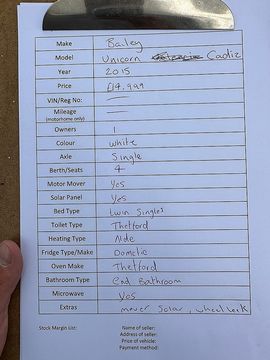 Make Bailey
Model Unicorn Cadiz
Year 2015
Price £14,999
VIN/Reg No:
Mileage
(motorhome only)
Owners 1
Colour white
Axle Single
Berth/Seats 4
Motor Mover Yes
Solar Panel Yes
Bed Type twin Singles
Toilet Type Thetford
Heating Type Alde
Fridge Type/Make Dometic
Oven Make Thetford
Bathroom Type End Bathroom
Microwave Yes
Extras mover Solar, wheel lock
Stock Margin List: Name of seller:
Address of seller:
Price of vehicle:
Payment method: